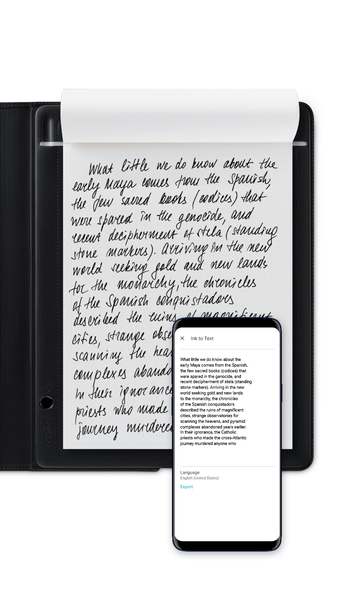 What little we do know about the
early Maya comes from the Spanish,
the few saved books (codices) that
were spared in the genocide, and
recent decipherment of stela (standing
stone markers). Arriving in the new
world seeking gold and new lands
for the monarchy, the chronicles
of the Spanish conquistadors
described the ruins of magnificent
cities, strange obse
scanning the hea
complexes aband
In their ignorance
priests who made
journey murdere
× Ink to Text
What little we do know about the
early Maya comes from the Spanish,
the few saved books (codices) that
were spared in the genocide, and
recent decipherment of stela (standing
stone markers). Arriving in the new
world seeking gold and new lands
to the monarchy, the chronicles
of the Spanish conquistadors
described the ruins of magnificent
cities, strange observatories for
scanning the heavens, and pyramid
complexes abandoned years earlier.
In their ignorance, the Catholic
priests who made the cross-Atlantic
journey murdered anyone who
Language
English (United States)
Export